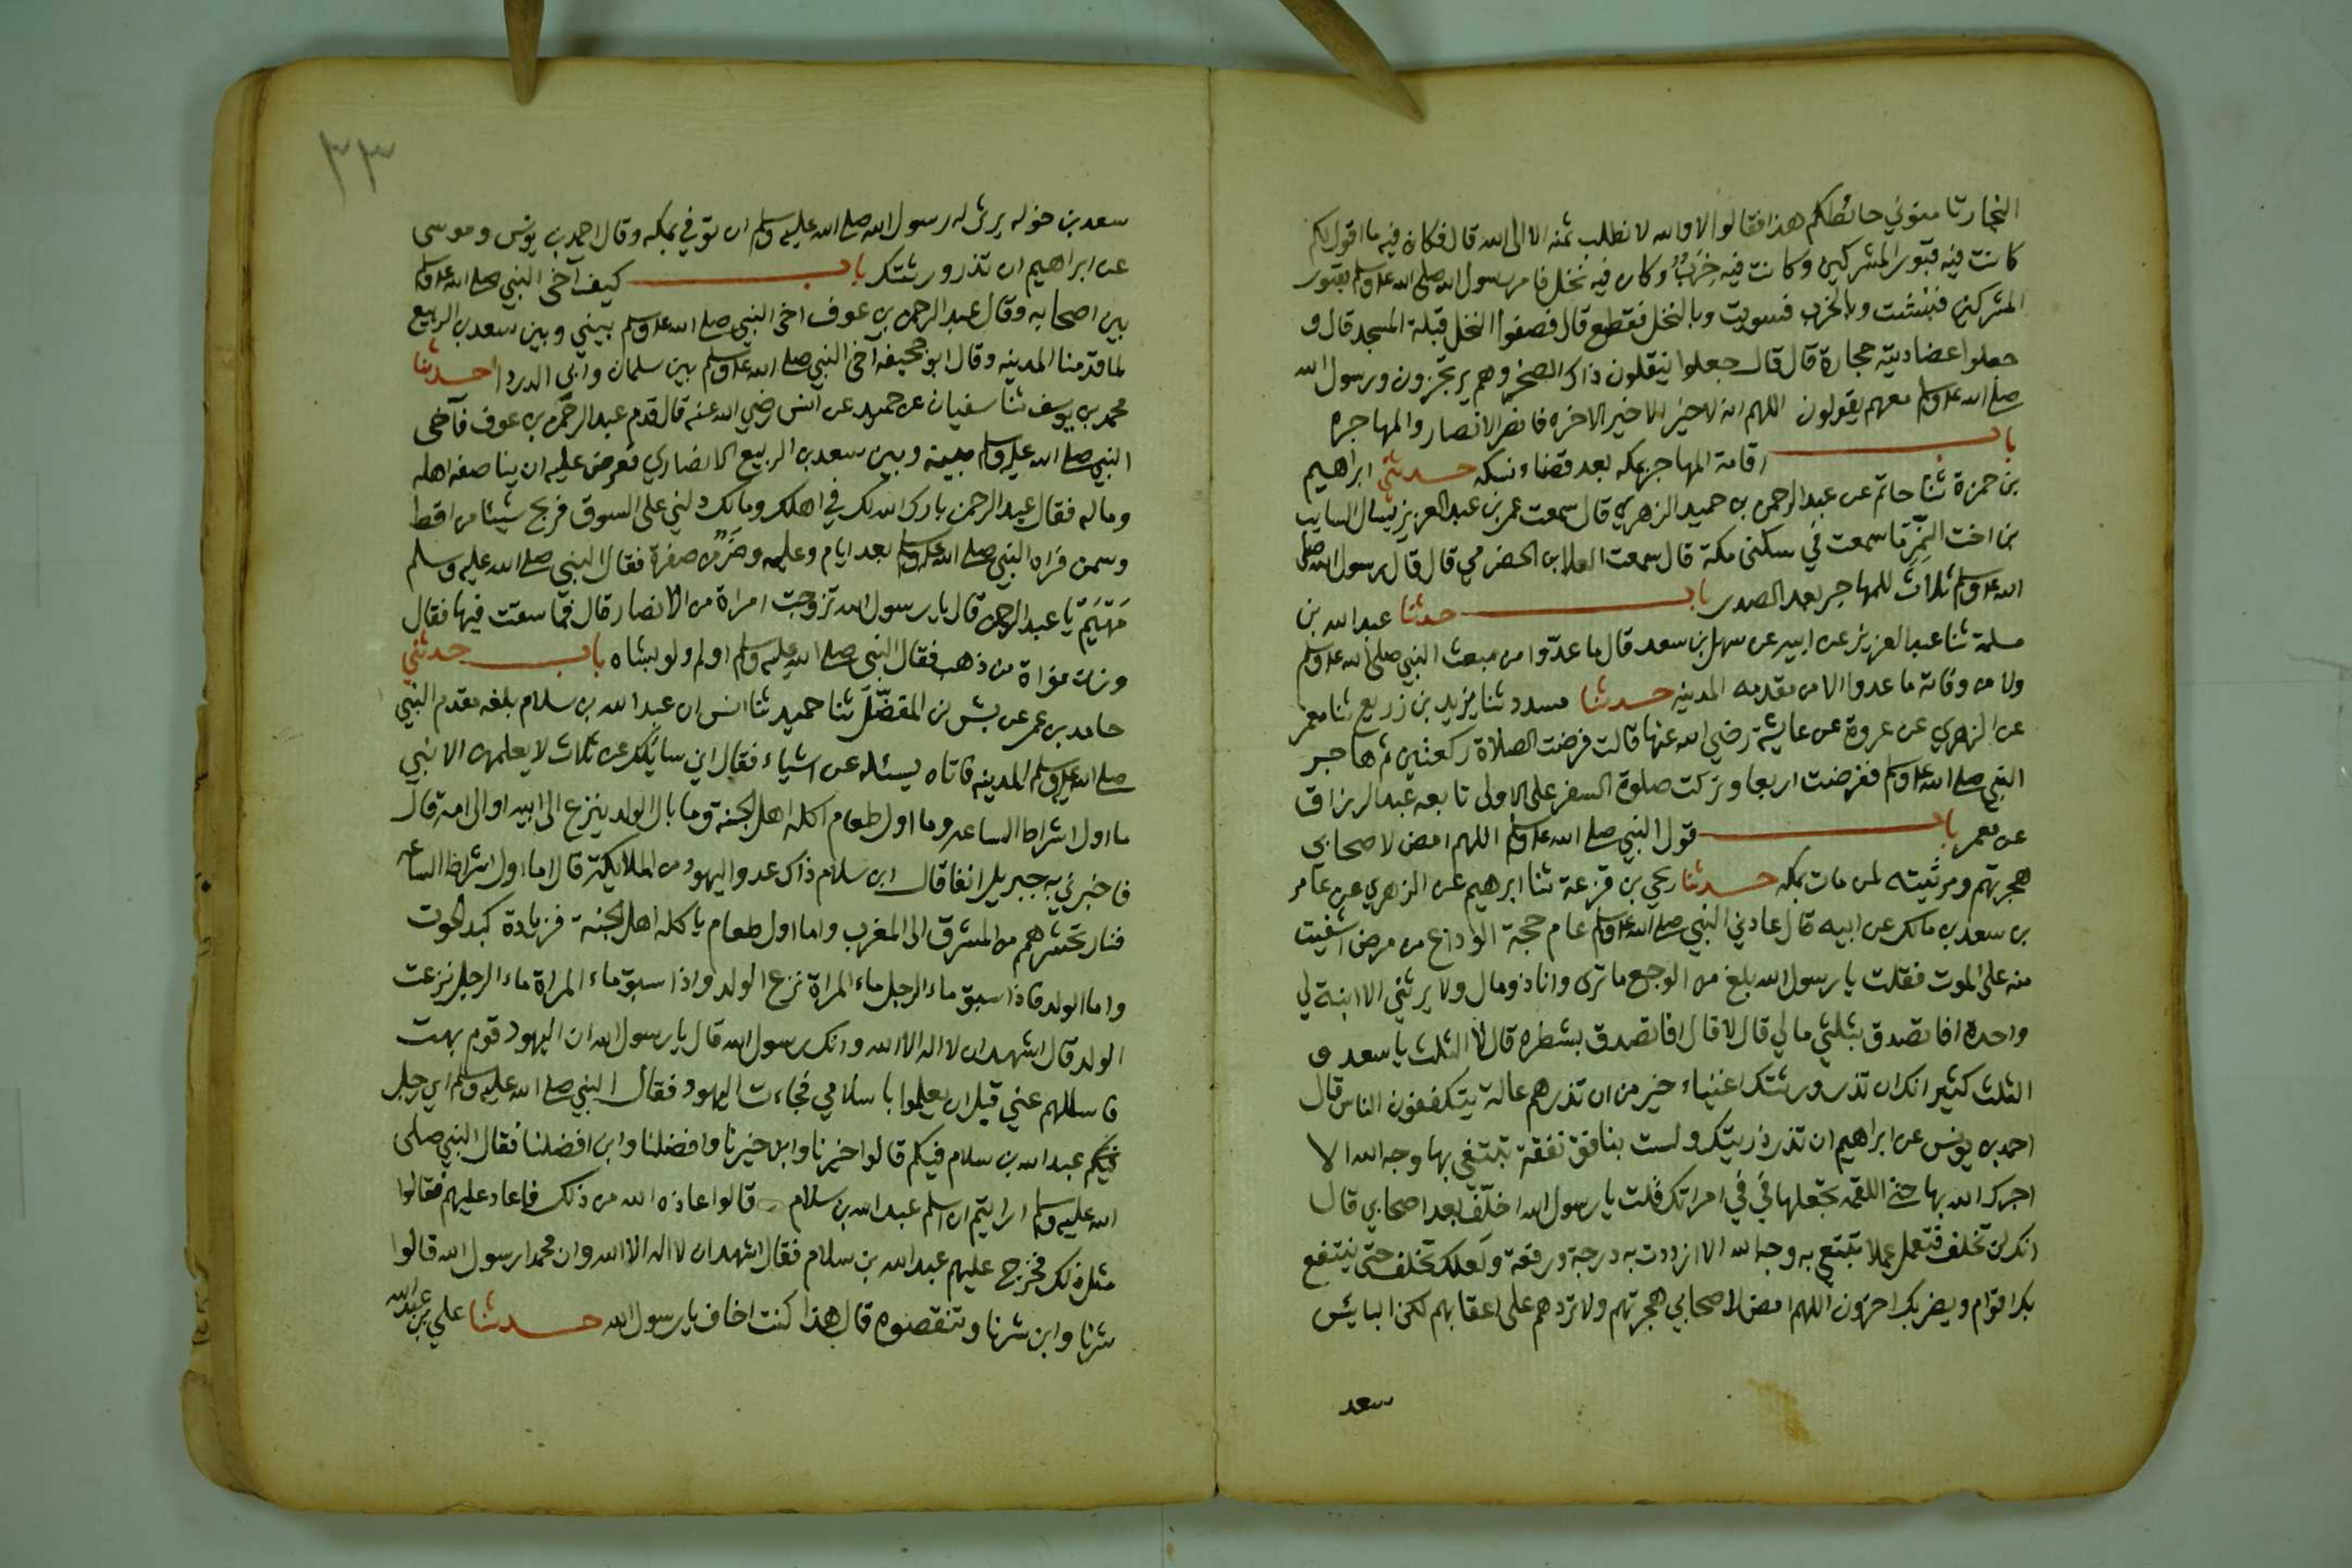 النجار ثامنوني حائطكم هذا فقالوا لا والله لا نطلب ثمنه الا الى الله قال فكان فيه ما اقول لكم
كانت فيه قبور المشركين وكانت فيه خِرَبٌ وكان فيه نخل فامر رسول الله صلى الله عليه وسلم بقبور
المشركين فنبشت وبالخرب فسويت وبالنخل فقطع قال فصفوا النخل قبلة المسجد قال و
جعلوا عضاديته حجارة قال قال جعلوا ينقلون ذاك الصخر وهم يرتجزون ورسول الله
صلى الله عليه وسلم معهم يقولون اللهم انه لا خير الا خير الاخره فانصر الانصار والمهاجره
باب اقامة المهاجر بمكه بعد قضاء نسكه حدثني ابراهيم
بن حمزة ثنا حاتم عن عبد الرحمن بن حميد الزهري قال سمعت عمر بن عبد العزيز يسال السايب
بن اخت النَّمِر ما سمعت في سكنى مكة قال سمعت العلا بن الحضرمي قال قال رسول الله صلى
الله عليه وسلم ثلاث للمهاجر بعد الصدر باب حدثنا عبد الله بن
مسلمة ثنا عبد العزيز عن ابيه عن سهل بن سعد قال ما عدّوا من مبعث النبي صلى الله عليه وسلم
ولا من وفاته ما عدوا الا من مقدمه المدينه حدثنا مسدد ثنا يزيد بن زريع ثنا معمر
عن الزهري عن عروة عن عايشة رضي الله عنها قالت فرضت الصلاة ركعتين ثم هاجر
النبي صلى الله عليه وسلم ففرضت اربعا وتركت صلوة السفر على الاولى تابعه عبد الرزاق
عن معمر باب قول النبي صلى الله عليه وسلم اللهم امض لاصحابي
هجرتهم ومرثيته لمن مات بمكه حدثنا يحيى بن قزعة ثنا ابرهيم عن الزهري عن عامر
بن سعد بن مالك عن ابيه قال عادني النبي صلى الله عليه وسلم عام حجة الوداع من مرض اشفيت
منه على الموت فقلت يا رسول الله بلغ من الوجع ما ترى وانا ذو مال ولا يرثني الا ابنة لي
واحدة افاتصدق بثلثي مالي قال لا قال افاتصدق بشطره قال لا الثلث يا سعد و
الثلث كثير انك ان تذر ورثتك اغنياء خير من ان تذرهم عالة يتكففون الناس قال
احمد بن يونس عن ابراهيم ان تذر ذريتك ولست بنافق نفقة تبتغي بها وجه الله الا
اجرك الله بها حتى اللقمه تجعلها في في امراتك قلت يا رسول الله اخلّف بعد اصحابي قال
انك لن تخلف فتعمل عملا تبتغي به وجه الله الا ازددت به درجة ورفعة ولعلك تخلف حتى ينتفع
بك اقوام ويضر بك اخرون اللهم امض لاصحابي هجرتهم ولا تردهم على اعقابهم لكن البايس
سعد
٣٣
سعد بن خوله يرثي له رسول الله صلى الله عليه وسلم ان توفي بمكه وقال احمد بن يونس وموسى
عن ابراهيم ان تذر ورثتك باب كيف آخى النبي صلى الله عليه وسلم
بين اصحابه وقال عبد الرحمن بن عوف اخى النبي صلى الله عليه وسلم بيني وبين سعد بن الربيع
لما قدمنا المدينه وقال ابو جحيفه آخى النبي صلى الله عليه وسلم بين سلمان وابي الدردا حدثنا
محمد بن يوسف ثنا سفيان عن حميد عن انس رضي الله عنه قال قدم عبد الرحمن بن عوف فآخى
النبي صلى الله عليه وسلم بينه وبين سعد بن الربيع الانصاري فعرض عليه ان يناصفه اهله
وماله فقال عبد الرحمن بارك الله لك في اهلك ومالك دلني على السوق فربح شيئا من اقط
وسمن فراه النبي صلى الله عليه وسلم بعد ايام وعليه وضرٌ من صفرة فقال النبي صلى الله عليه وسلم
مَهْيَمْ يا عبد الرحمن قال يا رسول الله تزوجت امراة من الانصار قال فما سقت فيها فقال
وزن نواة من ذهب فقال النبي صلى الله عليه وسلم اولم ولو بشاه باب حدثني
حامد بن عمر عن بشر بن المفضّل ثنا حميد ثنا انس ان عبد الله بن سلام بلغه مقدم النبي
صلى الله عليه وسلم المدينه فاتاه يسئله عن اشياء فقال اني سايلك عن ثلاث لا يعلمهن الا نبي
ما اول اشراط الساعه وما اول طعام اكله اهل الجنة وما بال الولد ينزع الى ابيه او الى امه قال
فاخبرني به جبريل انفا قال ابن سلام ذاك عدو اليهود من الملايكة قال اما اول اشراط الساعه
فنار تحشرهم من المشرق الى المغرب واما اول طعام ياكله اهل الجنة فزيادة كبد الحوت
واما الولد فاذا سبق ماء الرجل ماء المراة نزع الولد واذا سبق ماء المراة ماء الرجل نزعت
الولد قال اشهد ان لا اله الا الله وانك رسول الله قال يا رسول الله ان اليهود قوم بهت
فاسالهم عني قبل ان يعلموا باسلامي فجاءت اليهود فقال النبي صلى الله عليه وسلم اي رجل
فيكم عبد الله بن سلام فيكم قالوا خيرنا وابن خيرنا وافضلنا وابن افضلنا فقال النبي صلى
الله عليه وسلم ارايتم ان اسلم عبد الله بن سلام قالوا عاذه الله من ذلك فاعاد عليهم فقالوا
مثل ذلك فخرج عليهم عبد الله بن سلام فقال اشهد ان لا اله الا الله وان محمدا رسول الله قالوا
شرنا وابن شرنا وتنقصوه قال هذا كنت اخاف يا رسول الله حدثنا علي بن عبد الله